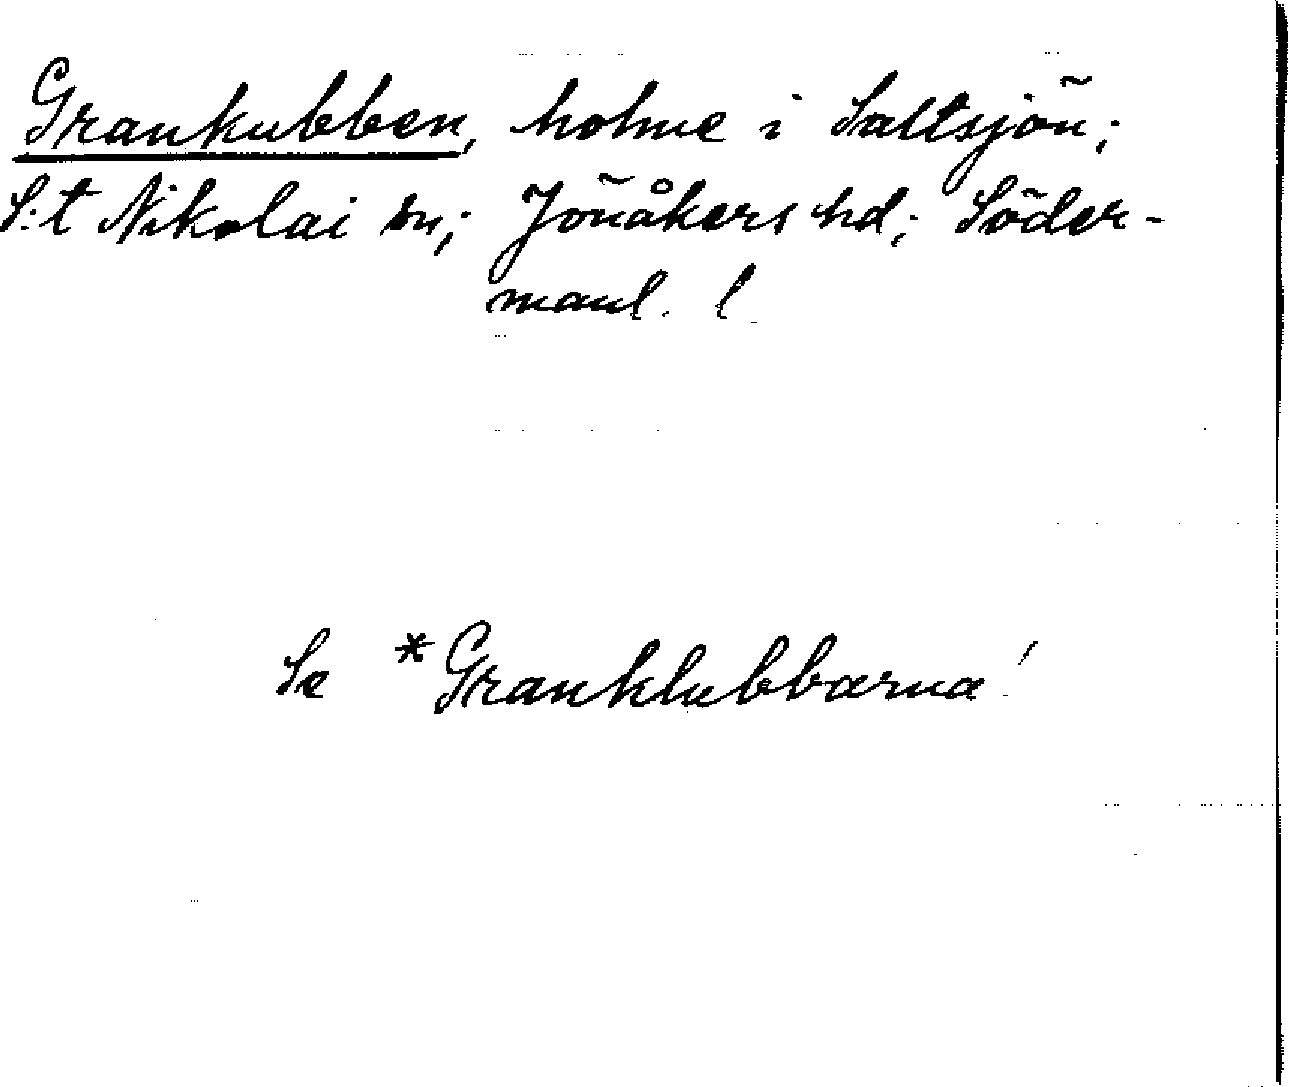 Grankubben, holme i Saltsjön;
S:t Nikolai sn; Jönåkers hd; Söder-
manl. l.
Se *Granklubbarna!